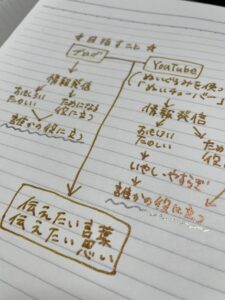 ★目指すこと★
ブログ
YouTube
(ぬいぐるみを使っ
"ぬいチューバー"
情報発信
おもしろい
たのしい
ためになる
役に立つ
誰かの役に立つ
情報発信
おもしろい
たのしい
ため
役
いやし・やすらぎ
誰かの役に立つ
伝えたい言葉
伝えたい思い